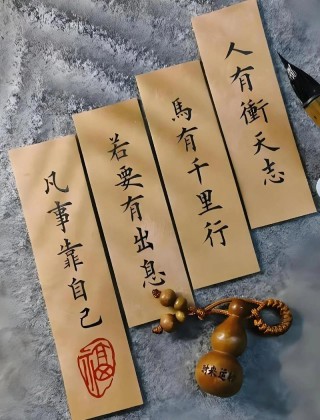 人有衝天志
馬有千里行
若要有出息
凡事靠自己
福